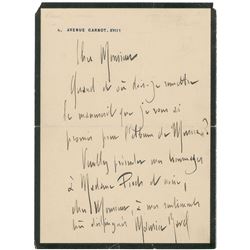 4, AVENUE CARNOT. XVII
Cher Monsieur
Quand et où dois-je remettre
le manuscrit que je vous ai
promis pour l'album de Musica?
Veuillez présenter mes hommages
à Madame et croire,
cher Monsieur, à mes sentiments
très distingués Maurice Ravel